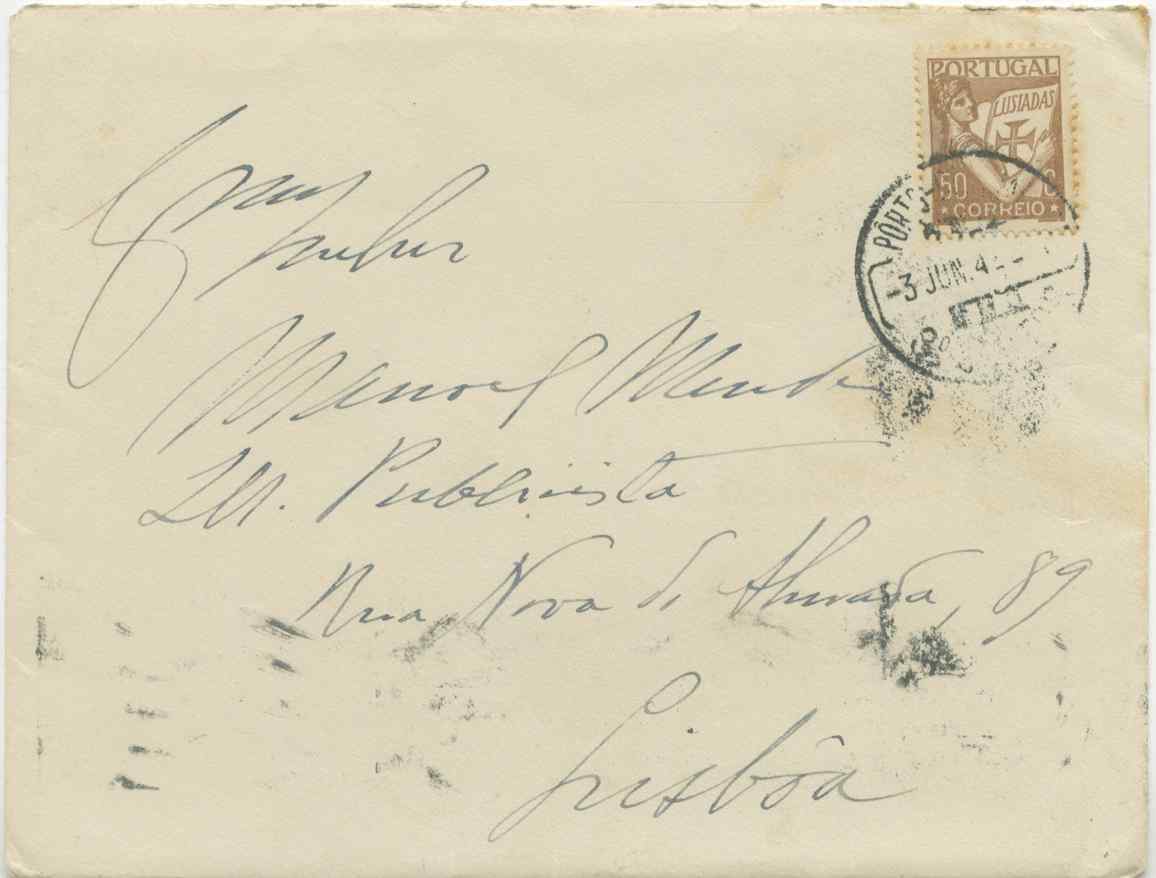 PORTUGAL
LUSIADAS
50 C
CORREIO
PÔRTO
-3 JUN.4
Senhor
Manoel Mendes
Publicista
Rua Nova do Almada, 89
Lisbôa